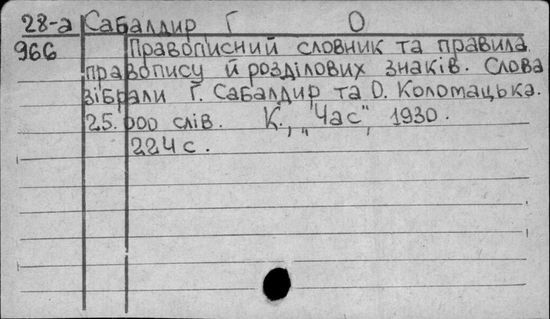 28-а Сабалдир Г О
966 Правописний словник та правила
правопису й розділових знаків. Слова
зібрали Г. Сабалдир та О. Коломацька.
25.000 слів. К., "Час", 1930.
224 с.